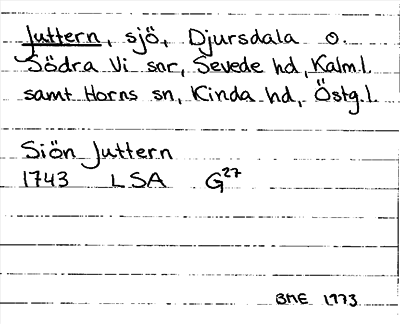 Juttern, sjö, Djursdala o.
Södra Vi snr, Sevede hd, Kalm.l.
samt Horns sn, Kinda hd, Östg.l.
Siön Juttern
1743 LSA G27
BME 1973